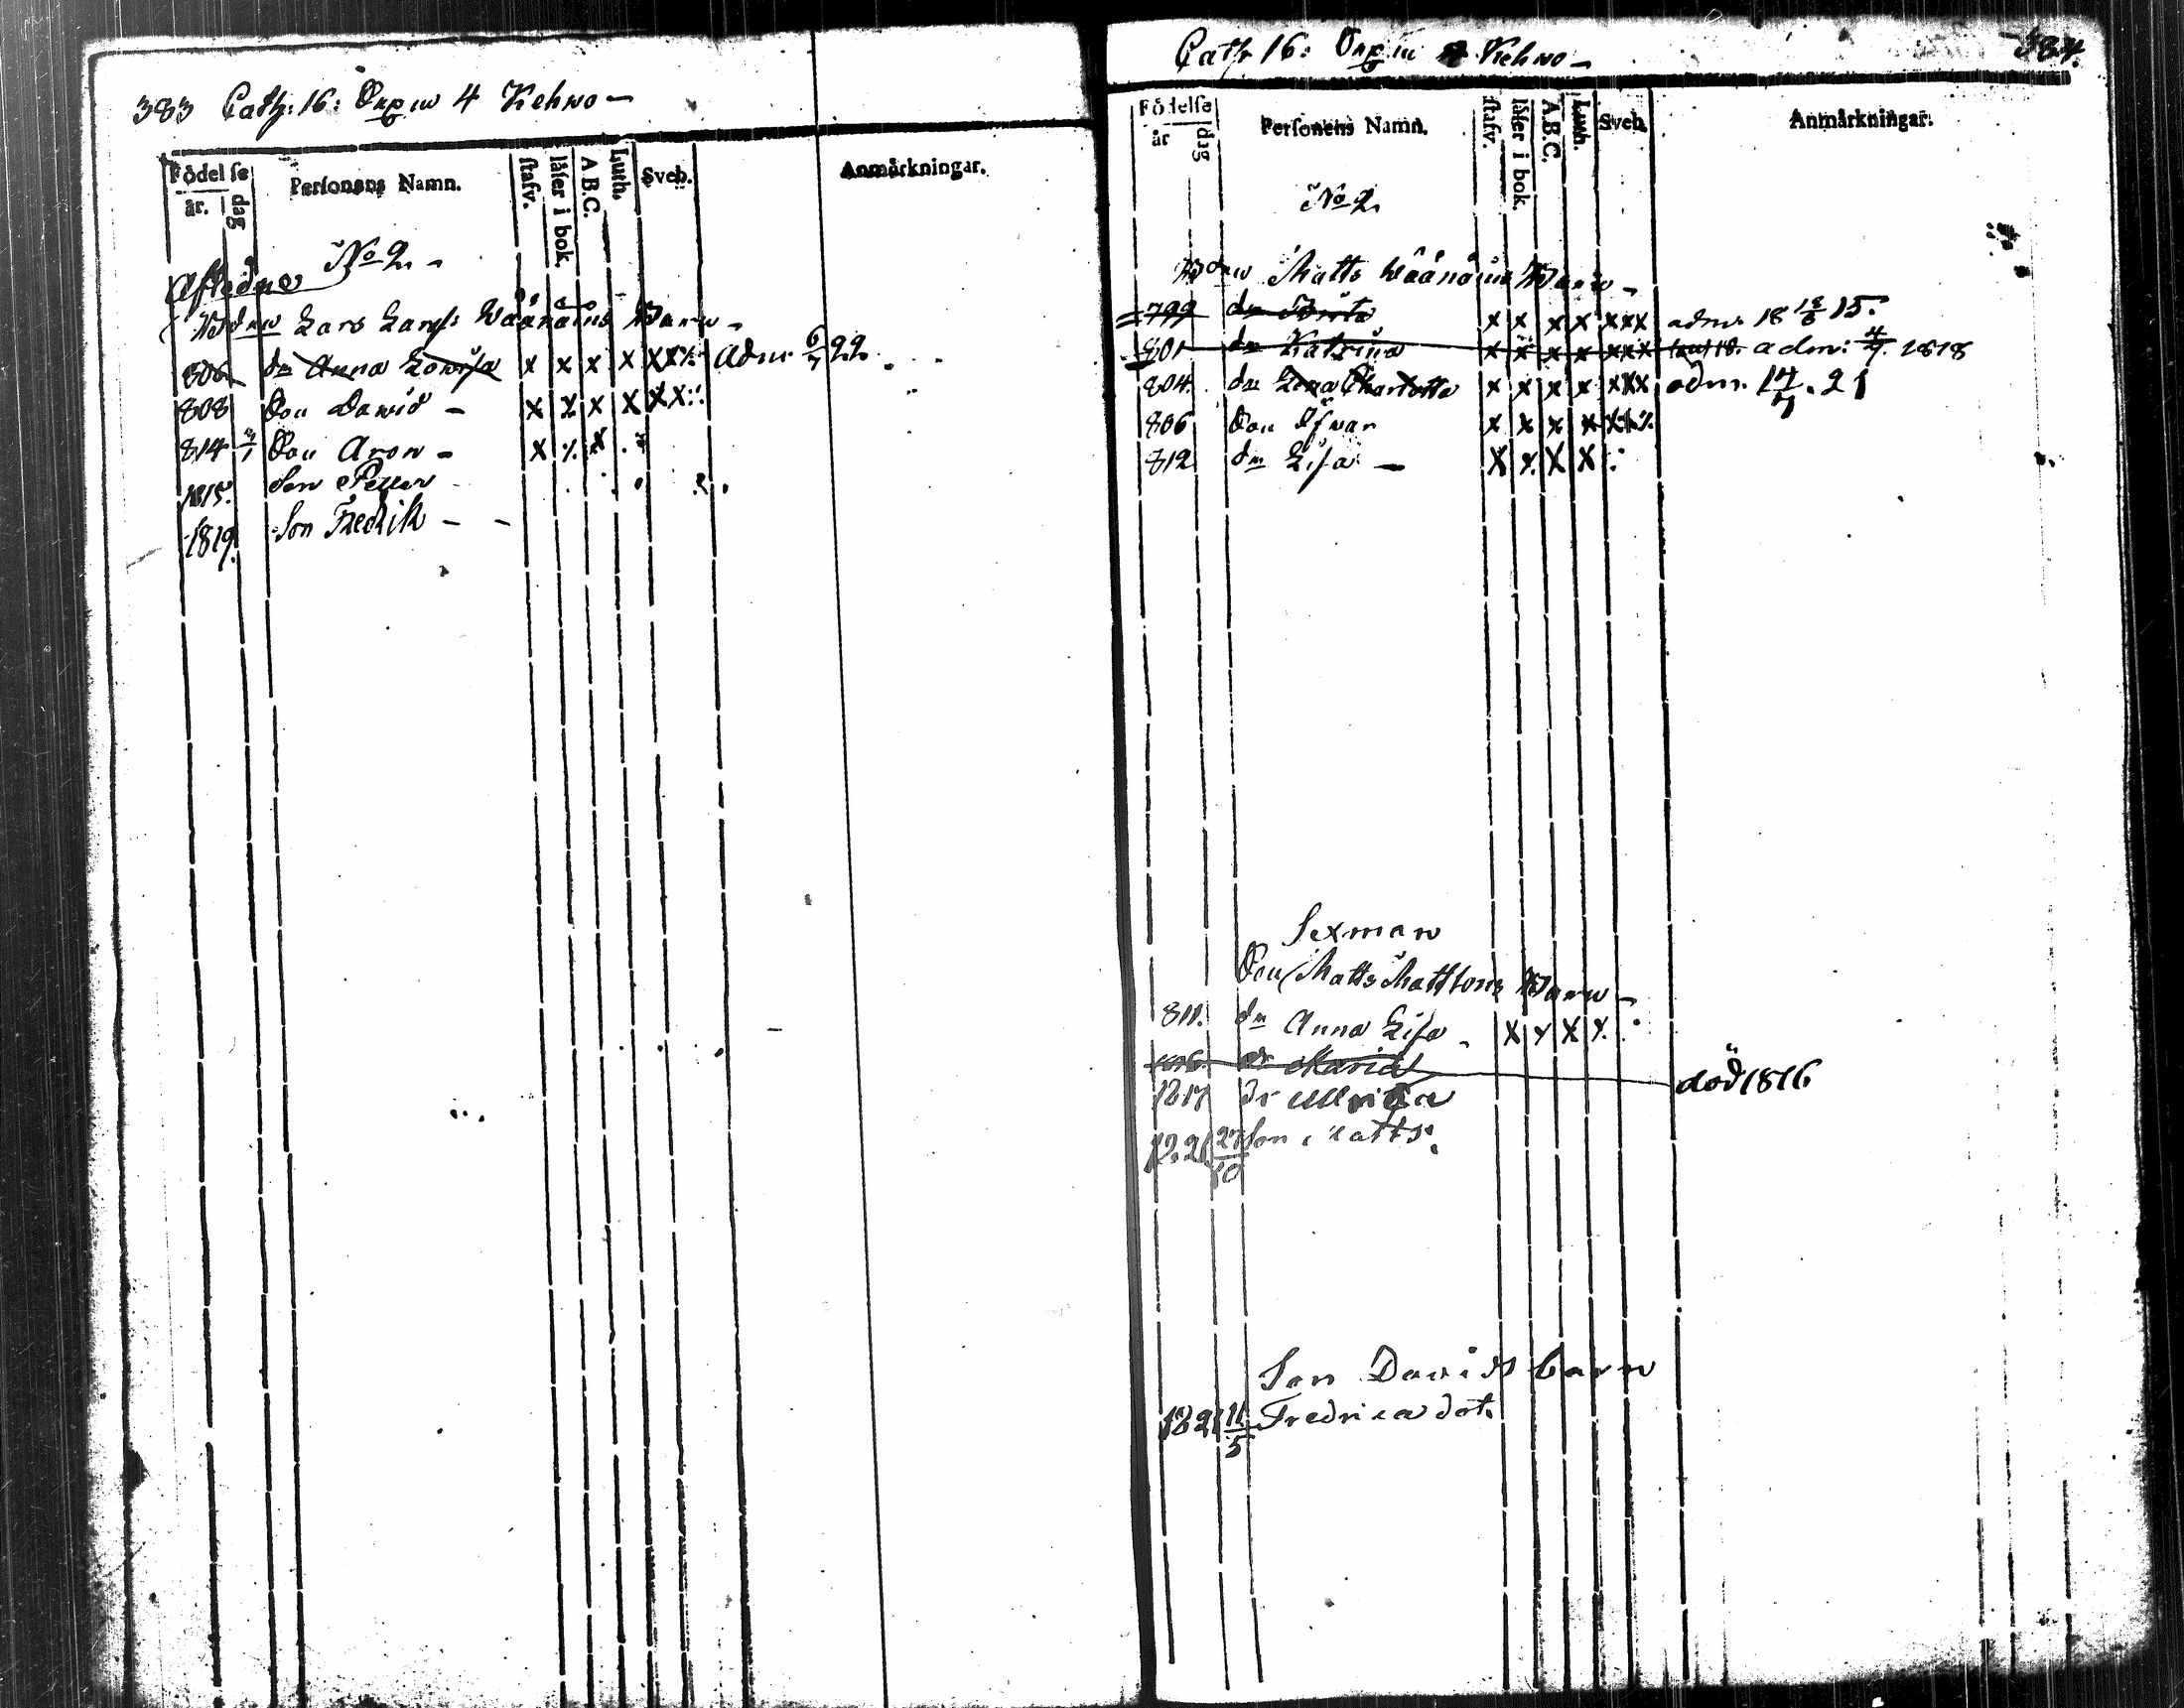 383 Cath: 16: Öxp 4 Kehvo
Födelse år. dag Personens Namn. stafv. läser i bok. A.B.C. Luth. Sveb. Anmärkningar.
No 2.
Afledne
Lars Larss: Wäänäins Barn
806 dr Anna Lowisa x x x x xx adm. 6/7 22.
808 Son David x x x x xx
814 Son Aron x x x
1815. Son Petter
1819. Son Fredrik
Cath 16: Öxp 4 Kehvo 384.
Födelse år dag Personens Namn. stafv. läser i bok. A.B.C. Luth. Sveb. Anmärkningar.
No 2.
Matts Wäänäins Barn
799 dr Brita x x x x xxx adm. 18 18/6 15.
801 dr Katrina x x x x xxx adm: 4/7. 1818
804. dr Lena Charlotta x x x x xxx adm. 14/7. 21
806 Son Ifvar x x x x
812 dr Lisa x x x x
Sexman
Son Matts Mattsons Barn
811. dr Anna Lisa x x x x
dr Maria död 1816
1817 dr Ullrica
1821 27/10 Son Matts.
Son Davids barn
1821 11/5 Fredrica dot.